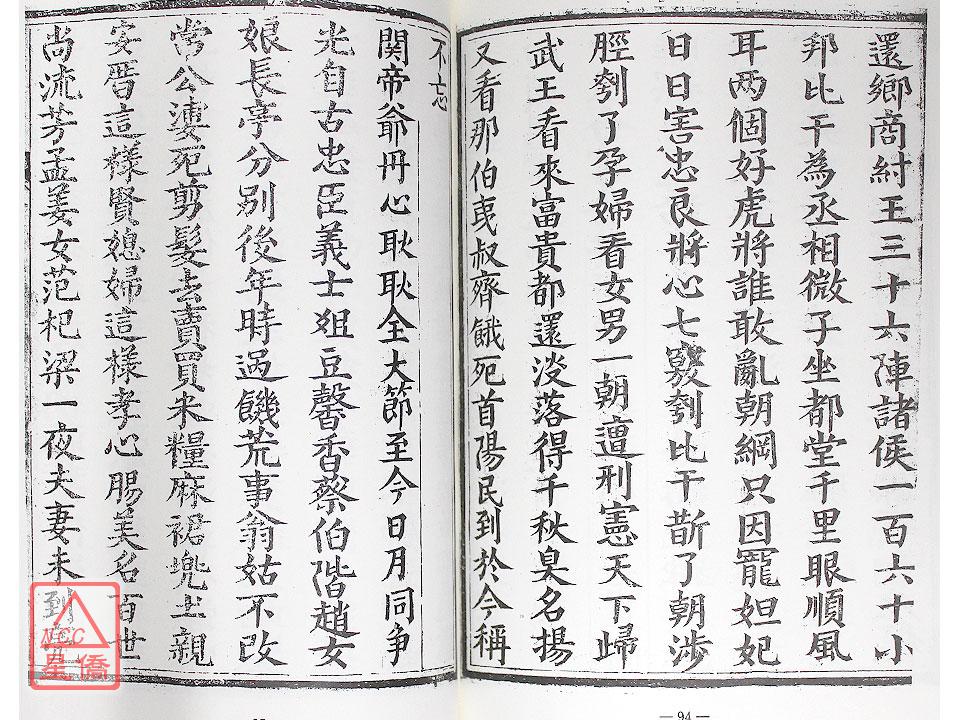 還鄉商紂王三十六陣諸侯一百六十小
邦比干為丞相微子坐都堂千里眼順風
耳两個好虎將誰敢亂朝綱只因寵妲妃
日日害忠良將心七竅刳比干斮了朝涉
脛刳了孕婦看女男一朝遭刑憲天下歸
武王看來富貴都還淡落得千秋臭名揚
又看那伯夷叔齊餓死首陽民到於今稱
不忘
関帝爺丹心耿耿全大節至今日月同争
光自古忠臣義士俎豆馨香蔡伯階趙女
娘長亭分別後年時过饑荒事翁姑不改
常公婆死剪髮去賣買米糧麻裙兜土親
安厝這樣賢媳婦這樣孝心腸美名百世
尚流芳孟姜女范杞梁一夜夫妻未到
NCC
星僑
— 94 —